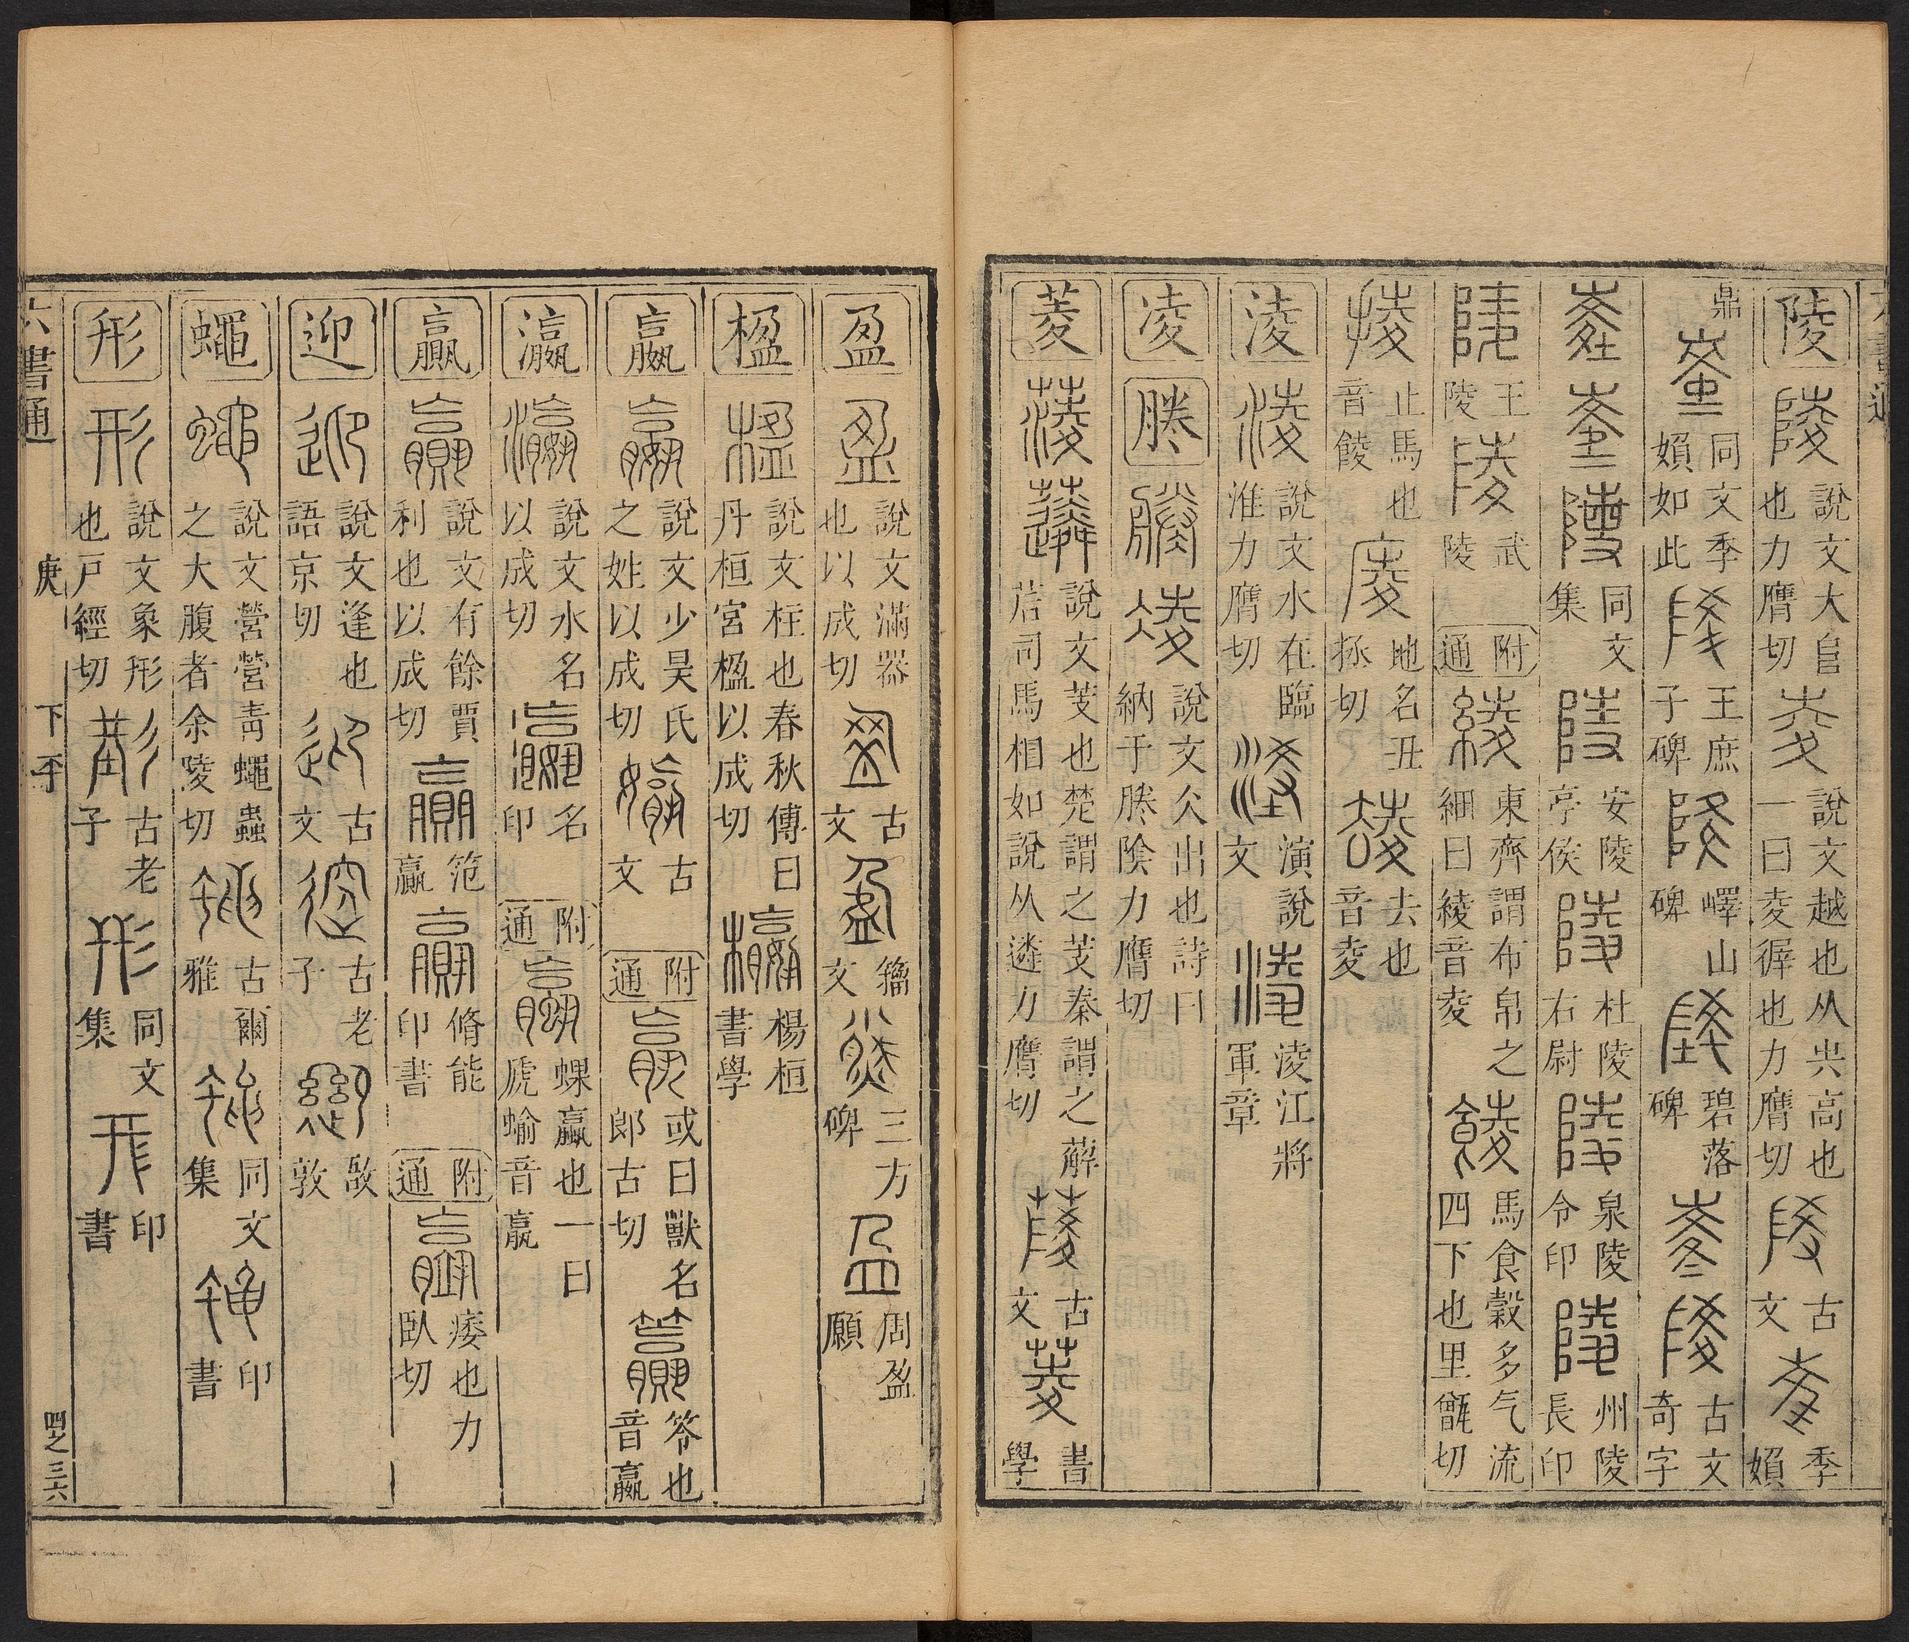 陵 說文大𨸏也力膺切 說文越也从𡴆高也一曰夌徲也力膺切 古文 季䫂
鼎 同文季䫂如此 王庶子碑 嶧山碑 碧落碑 古文奇字
同文集 安陵亭侯 杜陵右尉 泉陵令印 州陵長印
王陵 武陵 附通 東齊謂布帛之細曰綾音夌 馬食穀多气流四下也里甑切
止馬也音餕 地名丑拯切 去也音夌
淩 說文水在臨淮力膺切 演說文 淩江將軍章
凌 㓈 說文仌出也詩曰納于㓈隂力膺切
菱 說文芰也楚謂之芰秦謂之薢茩司馬相如說从遴力膺切 古文 書學
盈 說文滿器也以成切 古文 籒文 三方碑 周盈願
楹 說文柱也春秋傳曰丹桓宮楹以成切 楊桓書學
嬴 說文少昊氏之姓以成切 古文 附通 或曰獸名郎古切 笭也音嬴
瀛 說文水名以成切 名印 附通 蜾蠃也一曰虒蝓音蠃
贏 說文有餘賈利也以成切 范贏 脩能印書 附通 痿也力臥切
迎 說文逢也語京切 古文 古老子 敔敦
蠅 說文營營青蠅蟲之大腹者余陵切 古爾雅 同文集 印書
形 說文象形也戸經切 古老子 同文集 印書
六書通 庚 下平 四之三六